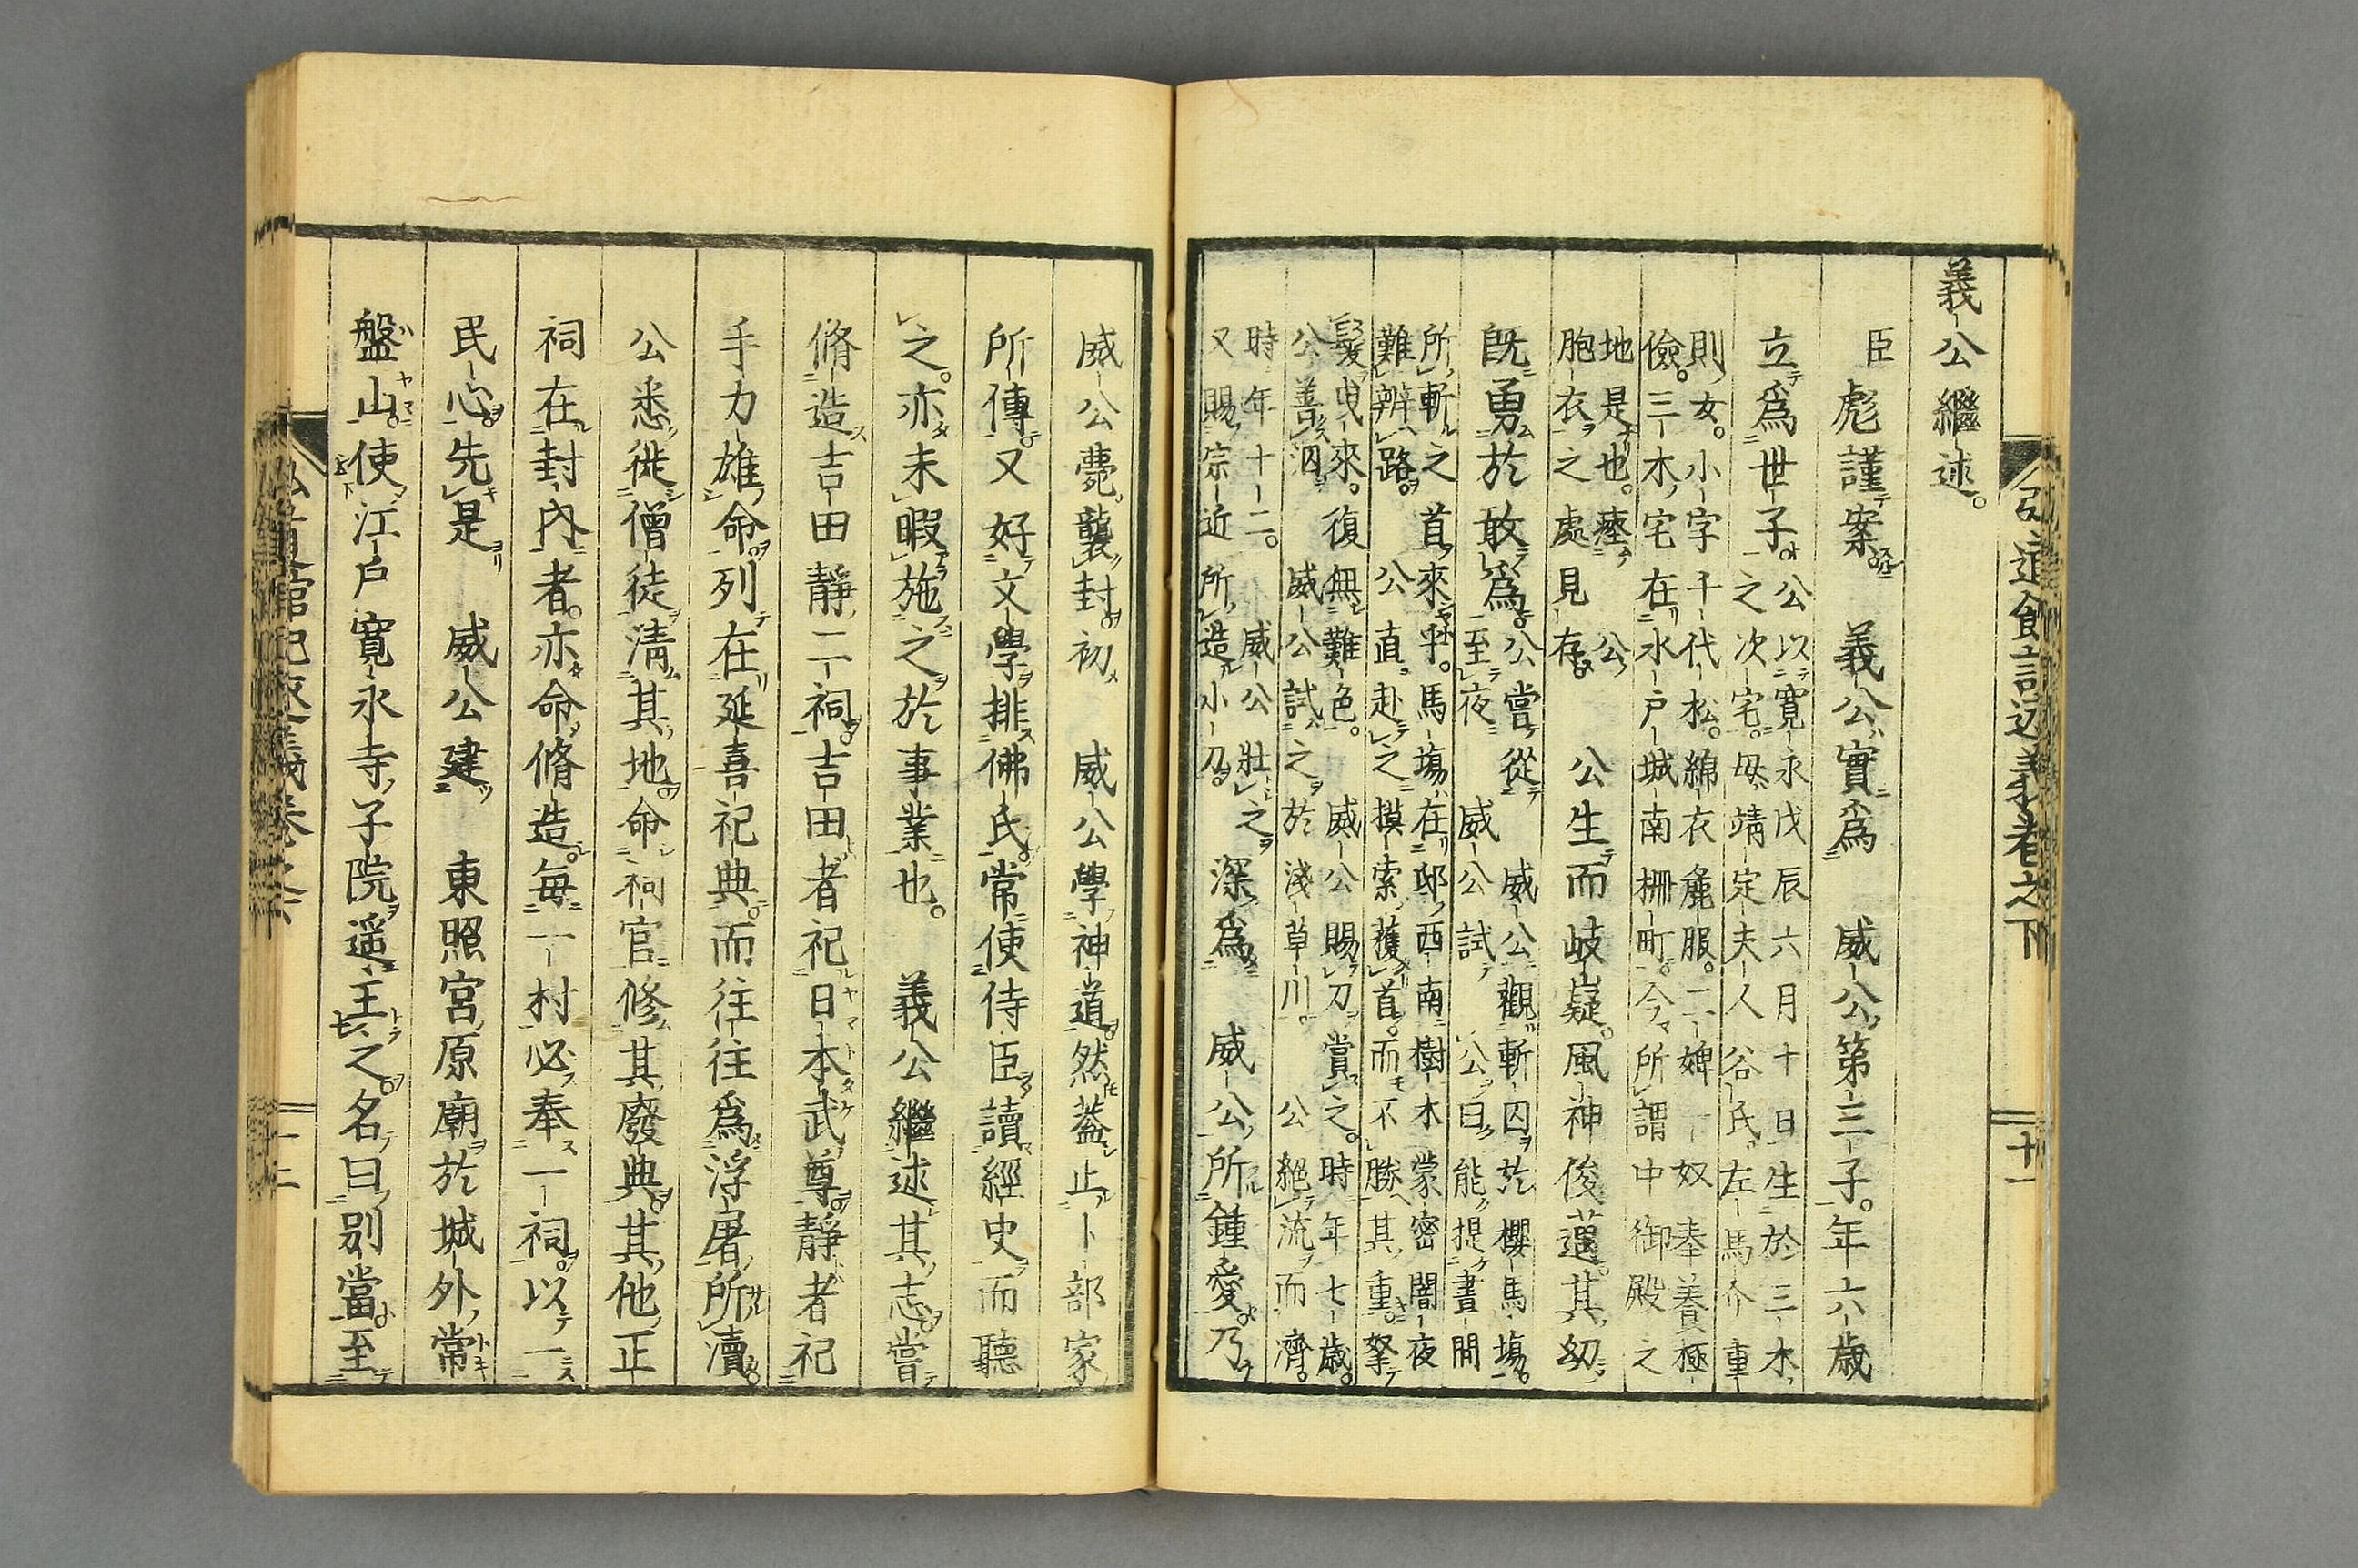 弘道館記述義卷之下 十一
義公繼述。
臣彪謹案。義公實爲威公第三子。年六歳
立爲世子。
公以寬永戊辰六月十日生於三木
之次宅。母靖定夫人谷氏。左馬介重
則女。小字千代松。綿衣麁服。二婢一奴奉養極
儉。三木宅在水戸城南柵町。今所謂中御殿之
地是也。瘞公
胞衣之處見存。
公生而岐嶷。風神俊邁。其幼
既勇於敢爲。
公嘗從威公觀斬囚於櫻馬場。
至夜威公試公曰能提晝間
所斬之首來乎。馬場在邸西南樹木蒙密闇夜
難辨路。公直赴之摸索獲首。而不勝其重。拏
髮曳來。復無難色。威公賜刀賞之。時年七歳。
公善泅。威公試之於淺草川。公絶流而濟。
時年十二。威公壯之。
又賜宗近所造小刀。
深爲威公所鍾愛。乃
威公薨襲封初威公學神道然蓋止卜部家
所傳。又好文學排佛氏。常使侍臣讀經史而聽
之。亦未暇施之於事業也。義公繼述其志。嘗
脩造吉田靜二祠。吉田者祀日本武尊。靜者祀
手力雄命。列在延喜祀典。而往往爲浮屠所瀆。
公悉徙僧徒淸其地。命祠官修其廢典。其他正
祠在封內者。亦命脩造。毎一村必奉一祠。以一
民心。先是威公建東照宮原廟於城外常
盤山。使江戶寬永寺子院遥主之。名曰別當。至
弘道館記述義卷之下 十二